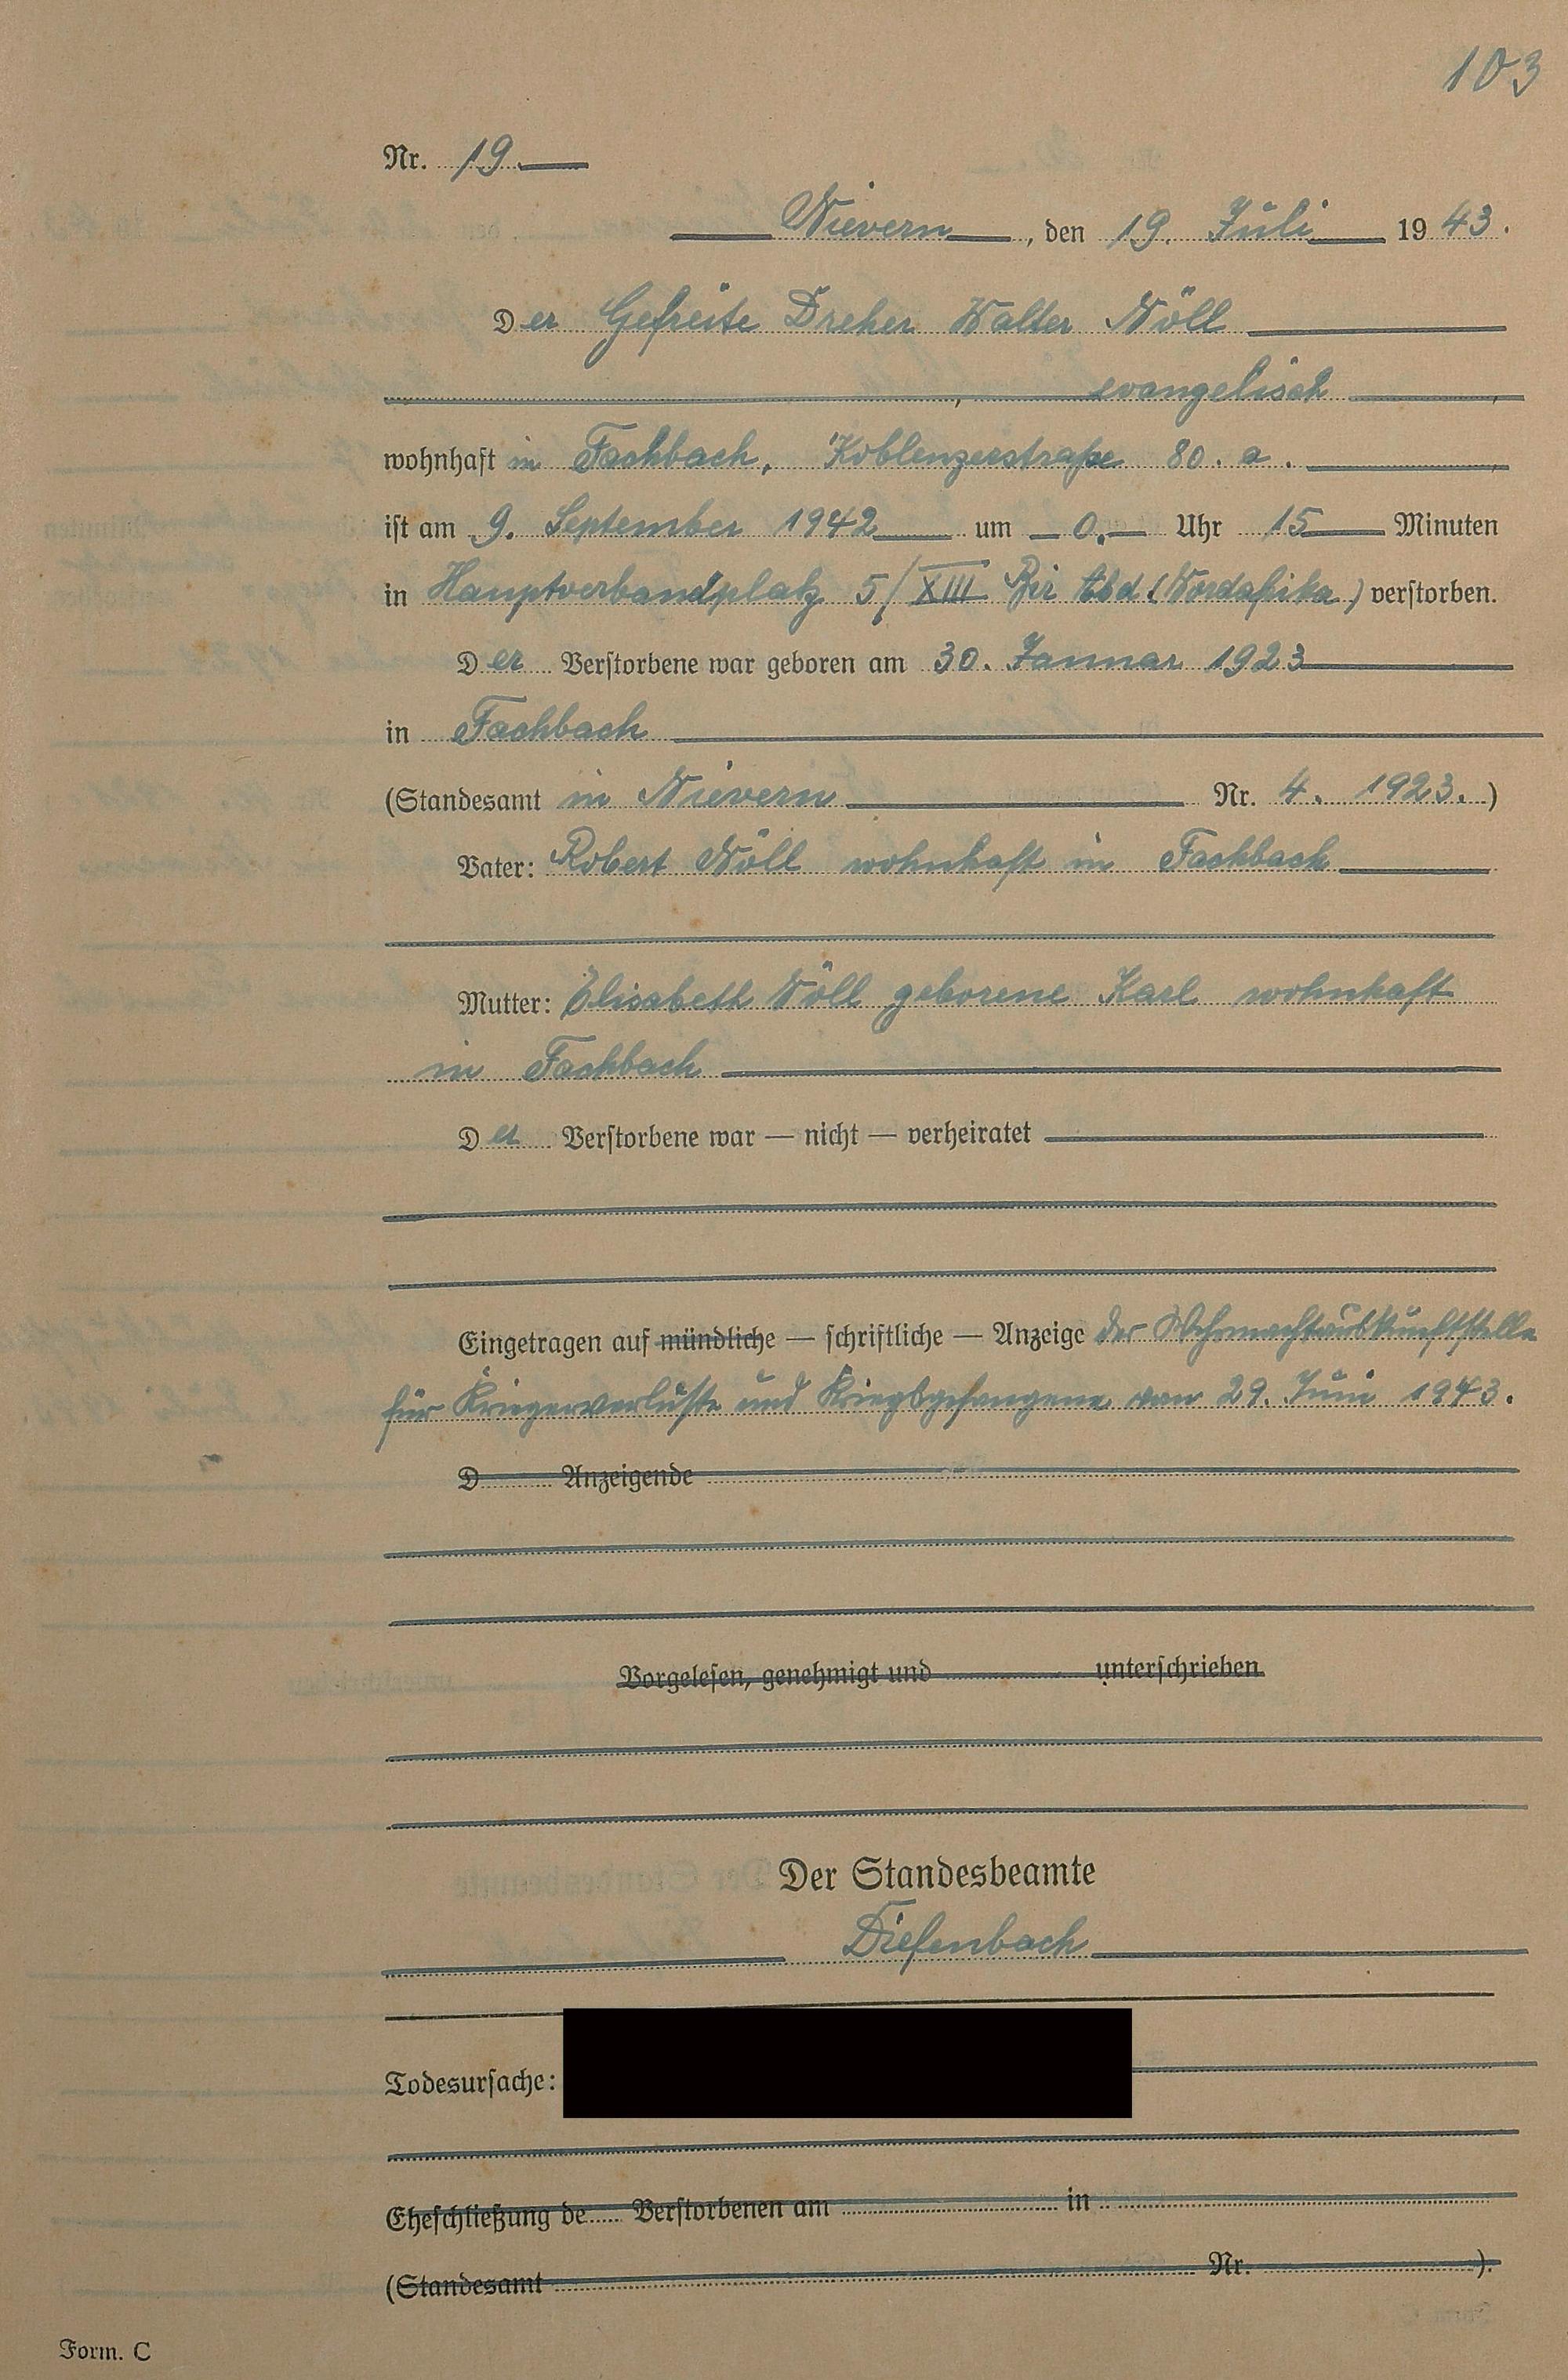 103
Nr. 19.
Nievern, den 19. Juli 1943.
Der Gefreite Dreher Walter Nöll
, evangelisch,
wohnhaft in Fachbach, Koblenzerstraße 80. a.,
ist am 9. September 1942 um 0. Uhr 15 Minuten
in Hauptverbandplatz 5/XIII Bir Abd (Nordafrika) verstorben.
Der Verstorbene war geboren am 30. Januar 1923
in Fachbach
(Standesamt in Nievern Nr. 4. 1923.)
Vater: Robert Nöll wohnhaft in Fachbach
Mutter: Elisabeth Nöll geborene Karl wohnhaft
in Fachbach
Der Verstorbene war — nicht — verheiratet
Eingetragen auf mündliche — schriftliche — Anzeige der Wehrmachtauskunftstelle
für Kriegerverluste und Kriegsgefangene vom 29. Juni 1943.
D Anzeigende
Vorgelesen, genehmigt und unterschrieben
Der Standesbeamte
Diefenbach
Todesursache:
Eheschließung de Verstorbenen am in
(Standesamt Nr. ).
Form. C